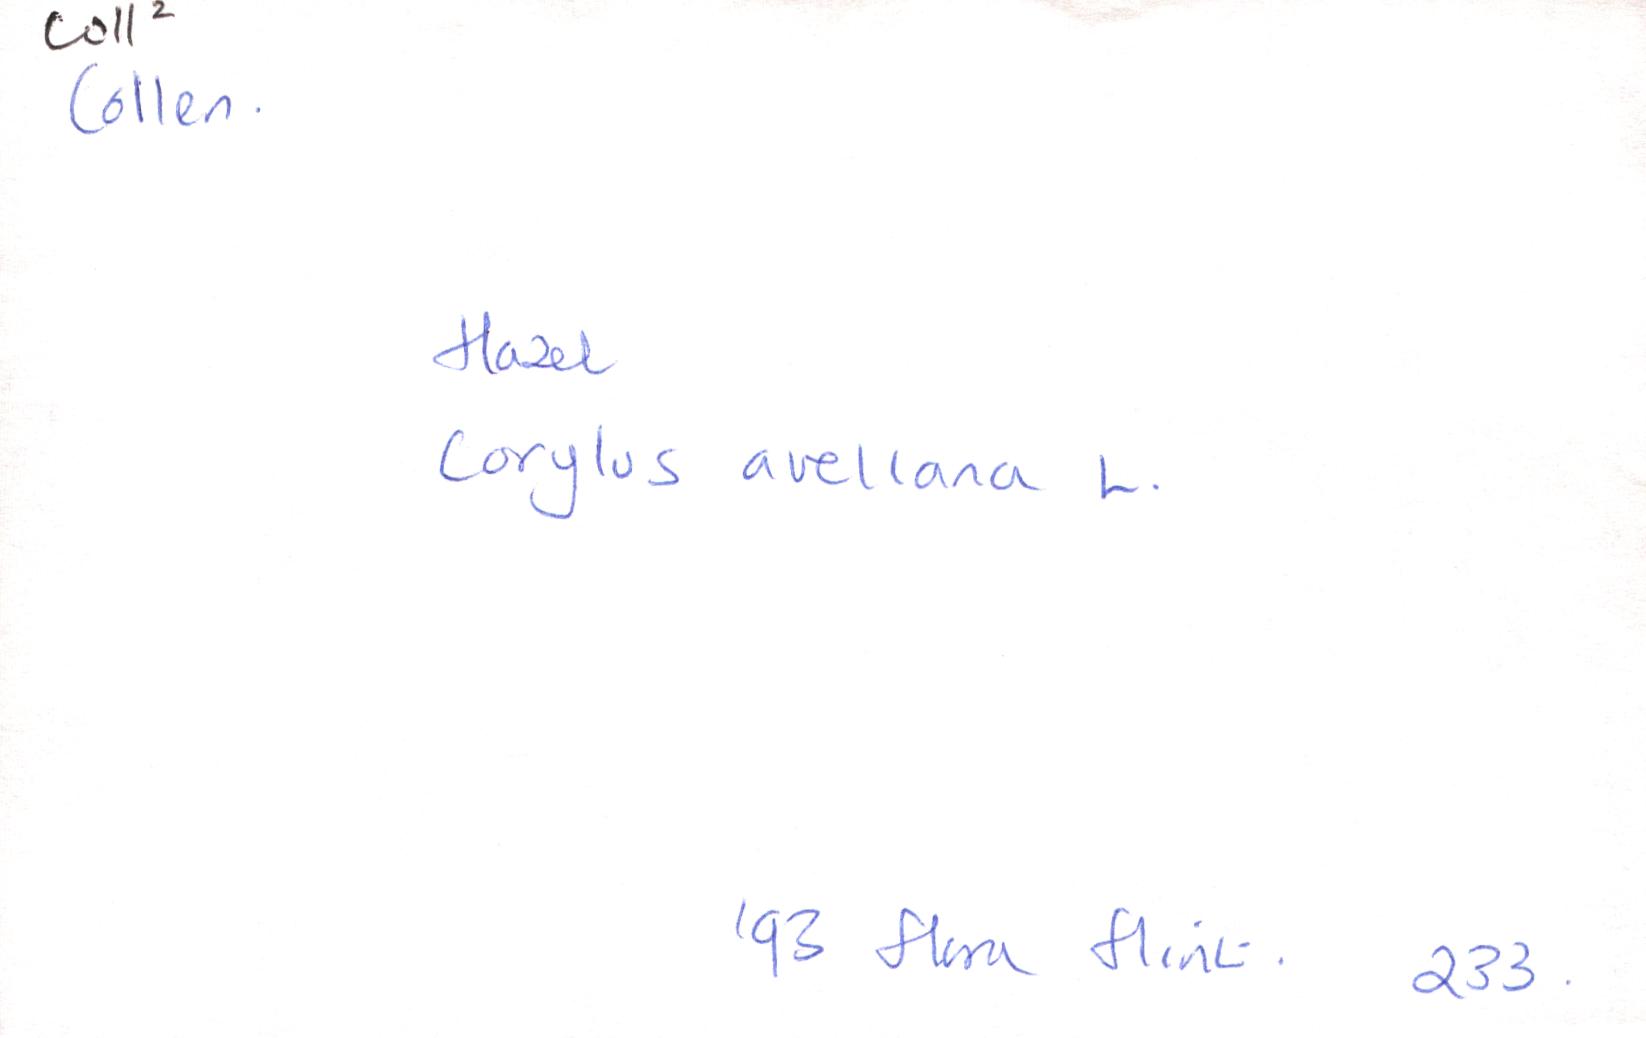 coll²
Collen.
Hazel
Corylus avellana L.
'93 Flora Flint. 233.